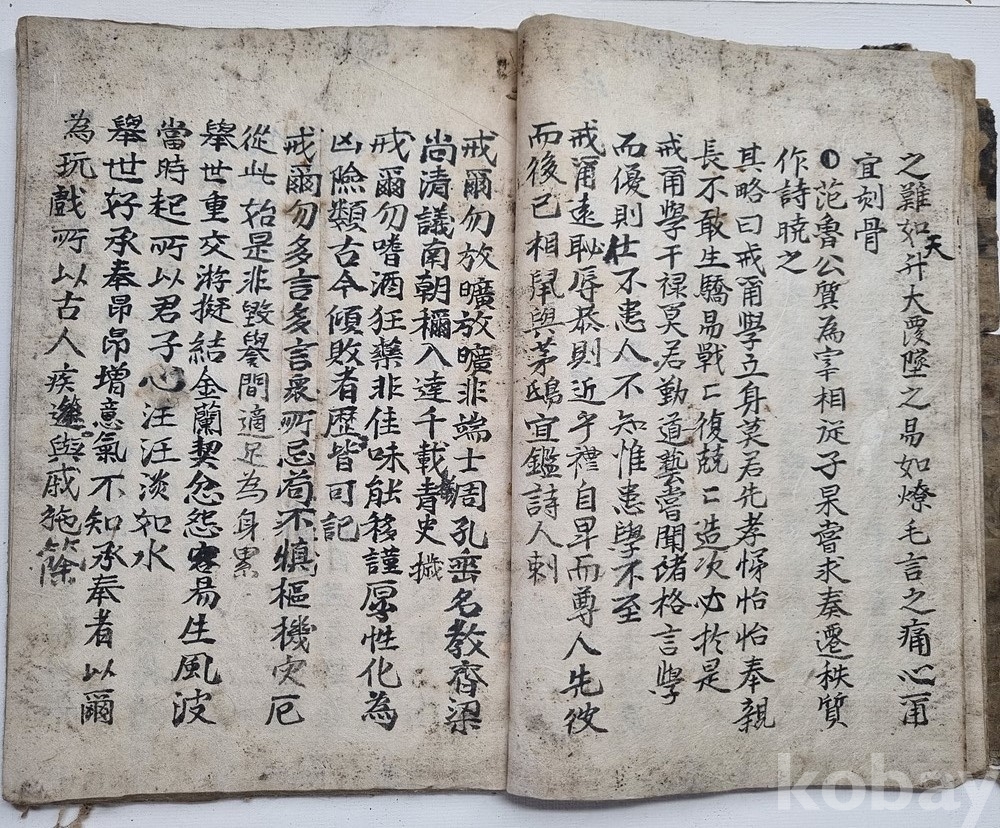 之難如升天大覆墜之易如燎毛言之痛心爾
宜刻骨
范魯公質為宰相從子杲嘗求奏遷秩質
作詩曉之
其略曰戒爾學立身莫若先孝悌怡怡奉親
長不敢生驕易戰〻復兢〻造次必於是
戒爾學干祿莫若勤道藝嘗聞諸格言學
而優則仕不患人不知惟患學不至
戒爾遠恥辱恭則近乎禮自卑而尊人先彼
而後已相鼠與茅鴟宜鑑詩人刺
戒爾勿放曠放曠非端士周孔垂名教齊梁
尚清議南朝稱八達千載青史
戒爾勿嗜酒狂藥非佳味能移謹厚性化為
凶險類古今傾敗者歷皆可記
戒爾勿多言多言衆所忌苟不慎樞機灾厄
從此始是非毀譽間適足為身累
舉世重交游擬結金蘭契忿怨容易生風波
當時起所以君子心汪汪淡如水
舉世好承奉昂昂增意氣不知承奉者以爾
為玩戲所以古人疾籧與戚施篨
kobay